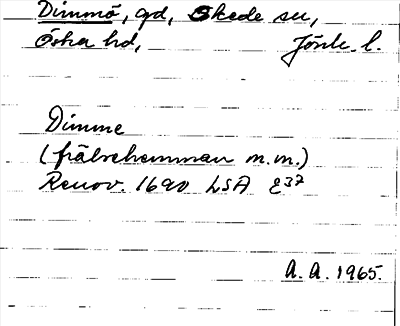 Dimmö, gd, Skede sn,
Östra hd, Jönk. l.
Dimme
(frälsehemman m.m.)
Renov. 1690 LSA E37
A. A. 1965.